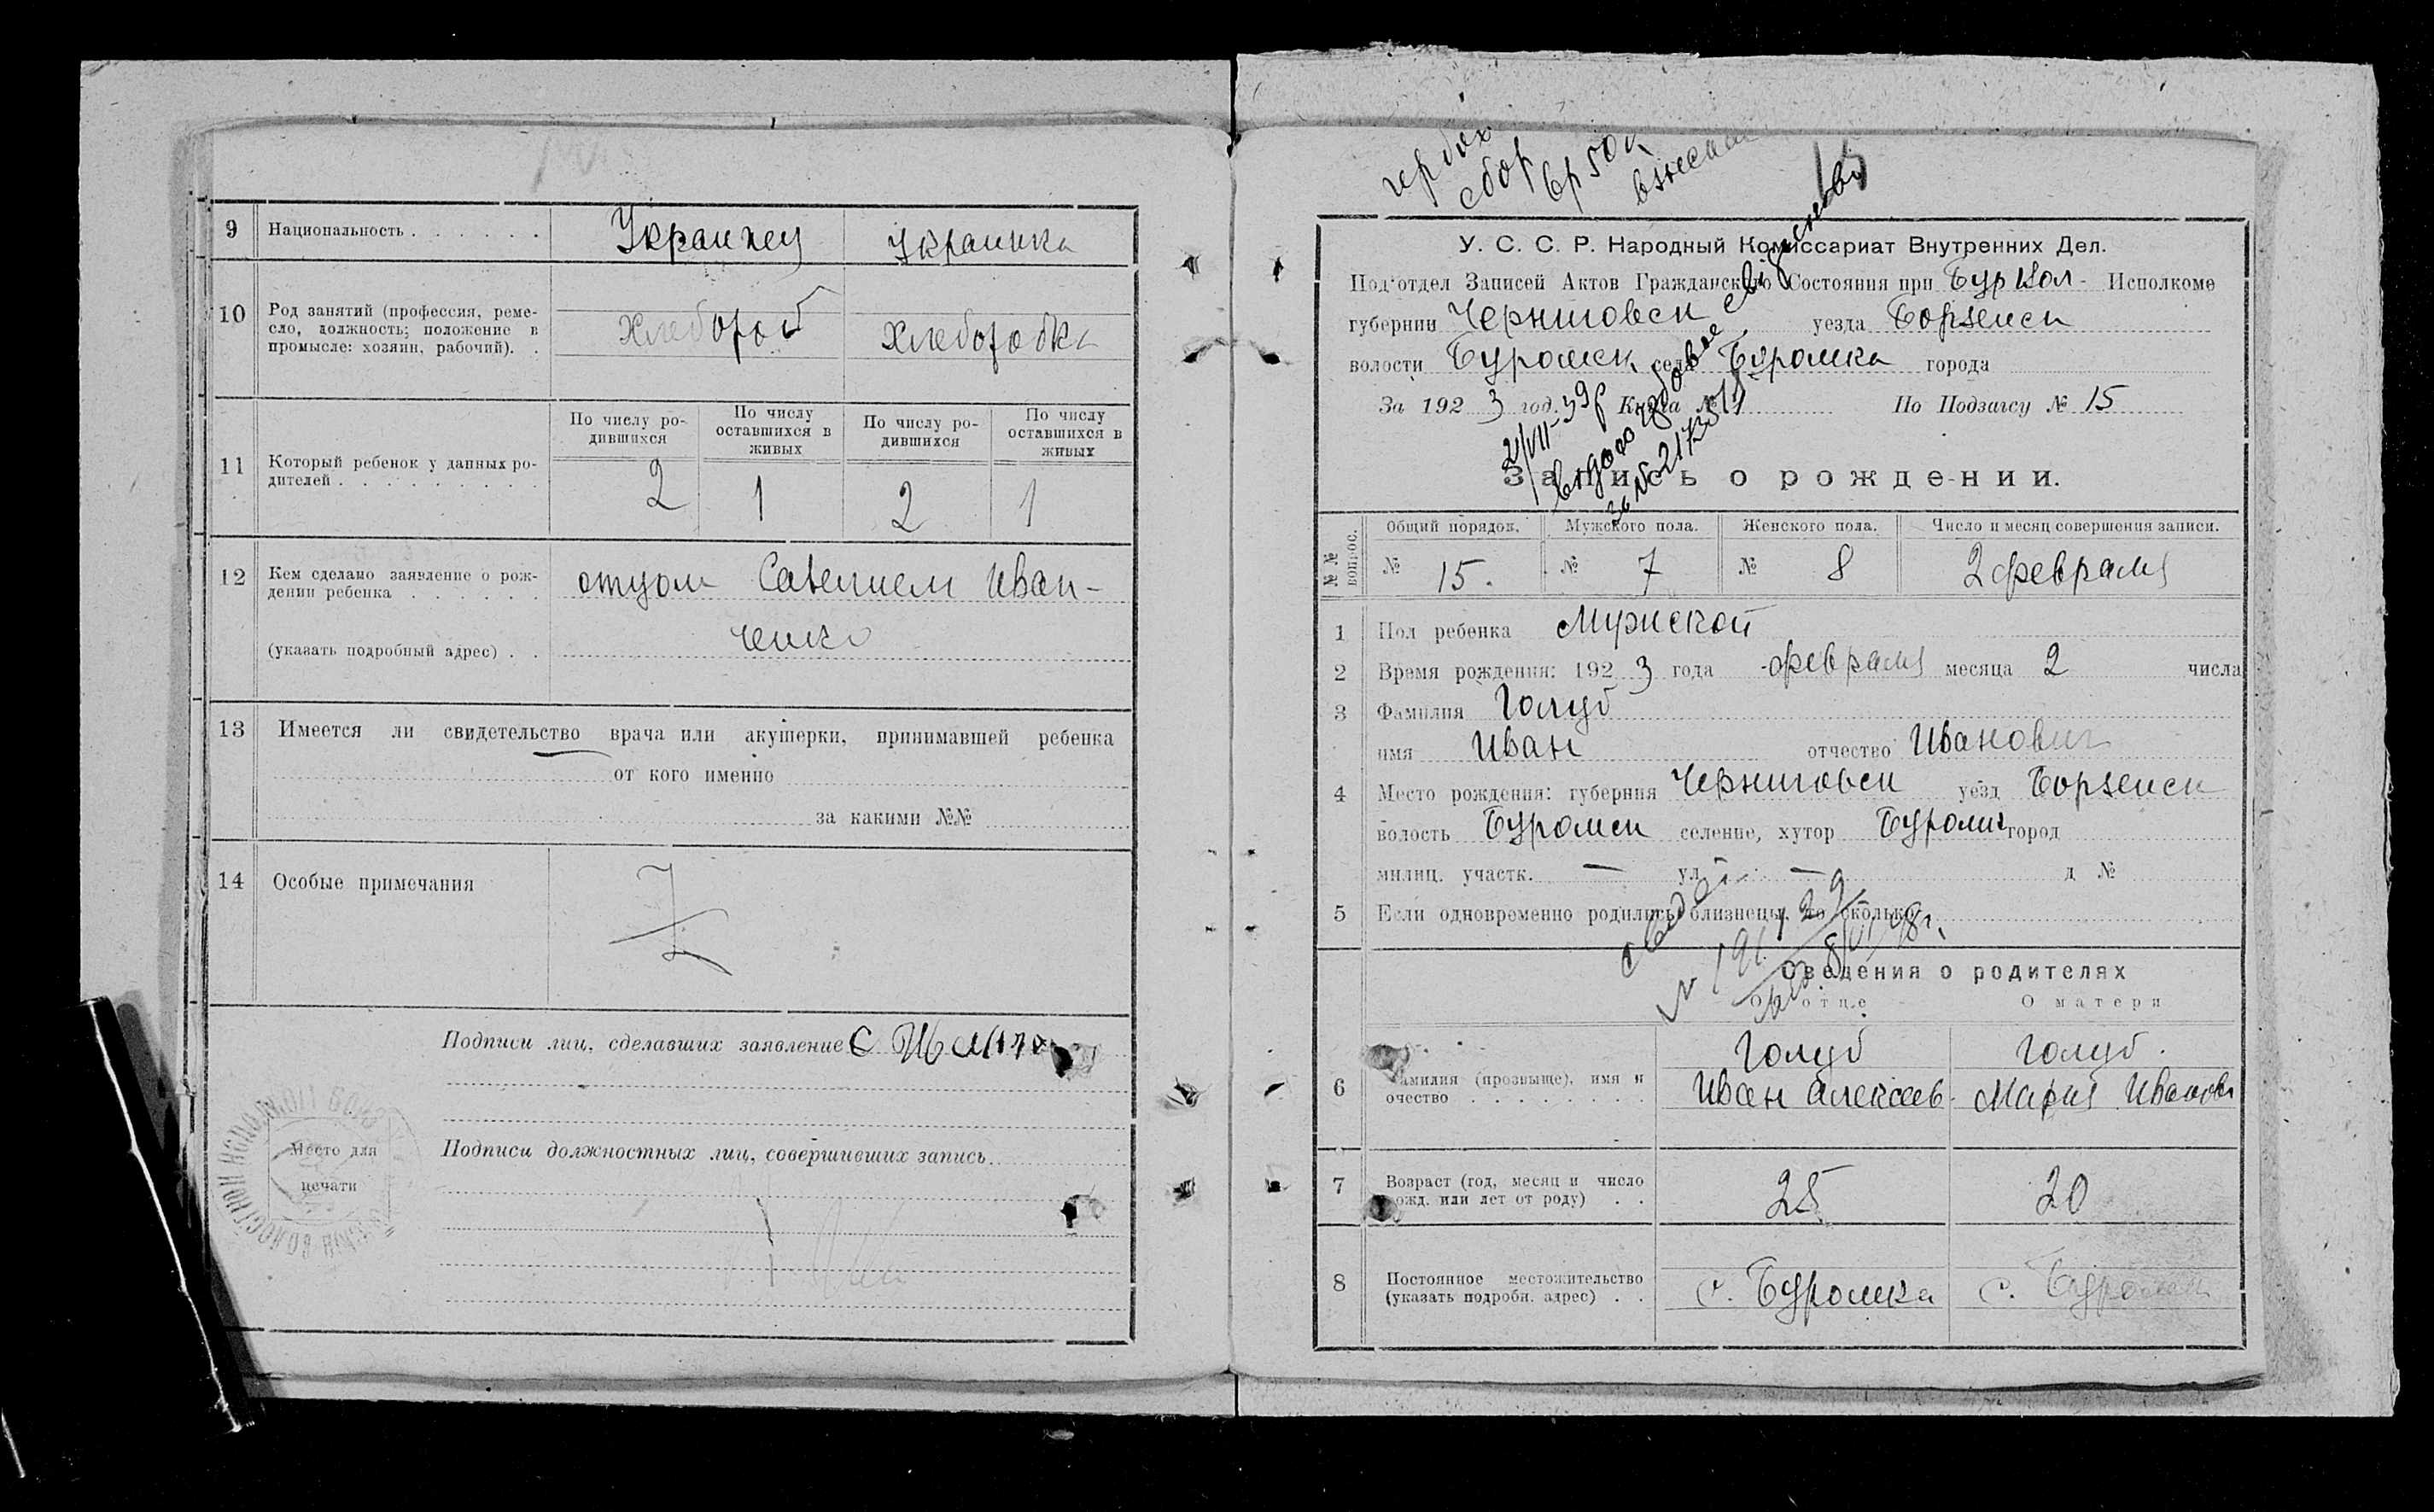 9 Национальность . . . . . . Украинец Украинка
10 Род занятий (профессия, реме-
сло, должность; положение в
промысле: хозяин, рабочий). . Хлебороб Хлеборобка
По числу ро-
дившихся
По числу
оставшихся в
живых
По числу ро-
дившихся
По числу
оставшихся в
живых
11 Который ребенок у данных ро-
дителей . . . . . . . . . . 2 1 2 1
12 Кем сделано заявление о рож-
дении ребенка . . . . . . отцом Савелием Иван-
(указать подробный адрес) . . ченко
13 Имеется ли свидетельство врача или акушерки, принимавшей ребенка
от кого именно
за какими №№
14 Особые примечания
Подписи лиц, сделавших заявление С
Подписи должностных лиц, совершивших запись
Место для
печати
сбор
50к
15
У. С. С. Р. Народный Комиссариат Внутренних Дел.
Под'отдел Записей Актов Гражданского Состояния при Исполкоме
губернии Черниговск уезда Борзенск
волости Буромск села Буромка города
За 192 3 год. Книга № По Подзагсу № 15
2/VII-39р
Запись о рождении.
№№ вопрос.
Общий порядок. Мужского пола. Женского пола. Число и месяц совершения записи.
№ 15. № 7 № 8 2 февраля
1 Пол ребенка Мужской
2 Время рождения: 192 3 года февраля месяца 2 числа
3 Фамилия Голуб
имя Иван отчество Иванович
4 Место рождения: губерния Черниговск уезд Борзенск
волость Буромск селение, хутор Буромка город
милиц. участк. — ул. — д №
5 Если одновременно родились близнецы, то сколько
Сведения о родителях
О отце О матери
6 Фамилия (прозвыще), имя и
очество . . . . . . . .
Голуб Голуб.
Иван Алексеев. Мария Иванов
7 Возраст (год, месяц и число
рожд. или лет от роду) . . 25 20
8 Постоянное местожительство
(указать подробн. адрес) . . с. Буромка с. Буромка